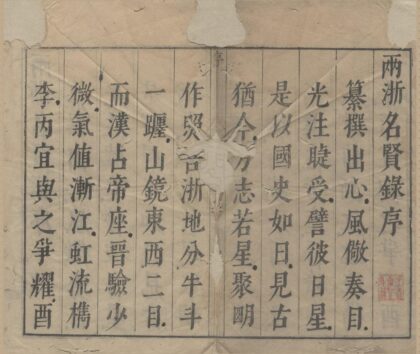 兩浙名賢錄序
纂撰出心風儆奏目
光注睫受譬彼日星
是以國史如日見古
猶今方志若星聚明
作照浙地分牛斗
一躔山鏡東西二目
而漢占帝座晉驗少
微氣值漸江虹流檇
李丙宜與之爭耀酉